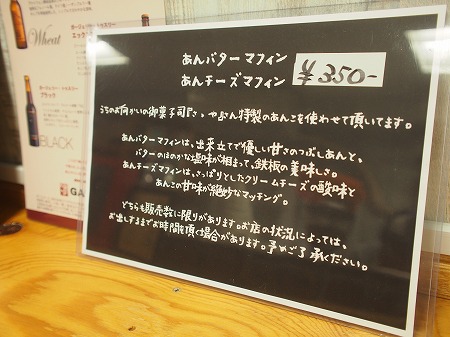 あんバターマフィン
あんチーズマフィン
¥350-
うちのお向かいの御菓子司『さゝやぶん特製のあんこを使わせて頂いてます。
あんバターマフィンは、出来立てで優しい甘さのつぶしあんと、
バターのほのかな塩味が相まって、鉄板の美味しさ。
あんチーズマフィンは、さっぱりとしたクリームチーズの酸味と
あんこの甘味が絶妙なマッチング。
どちらも販売数に限りがあります。お店の状況によっては、
お出しするまでお時間を頂く場合があります。予めご了承ください。
Wheat
ブラック
BLACK
GA